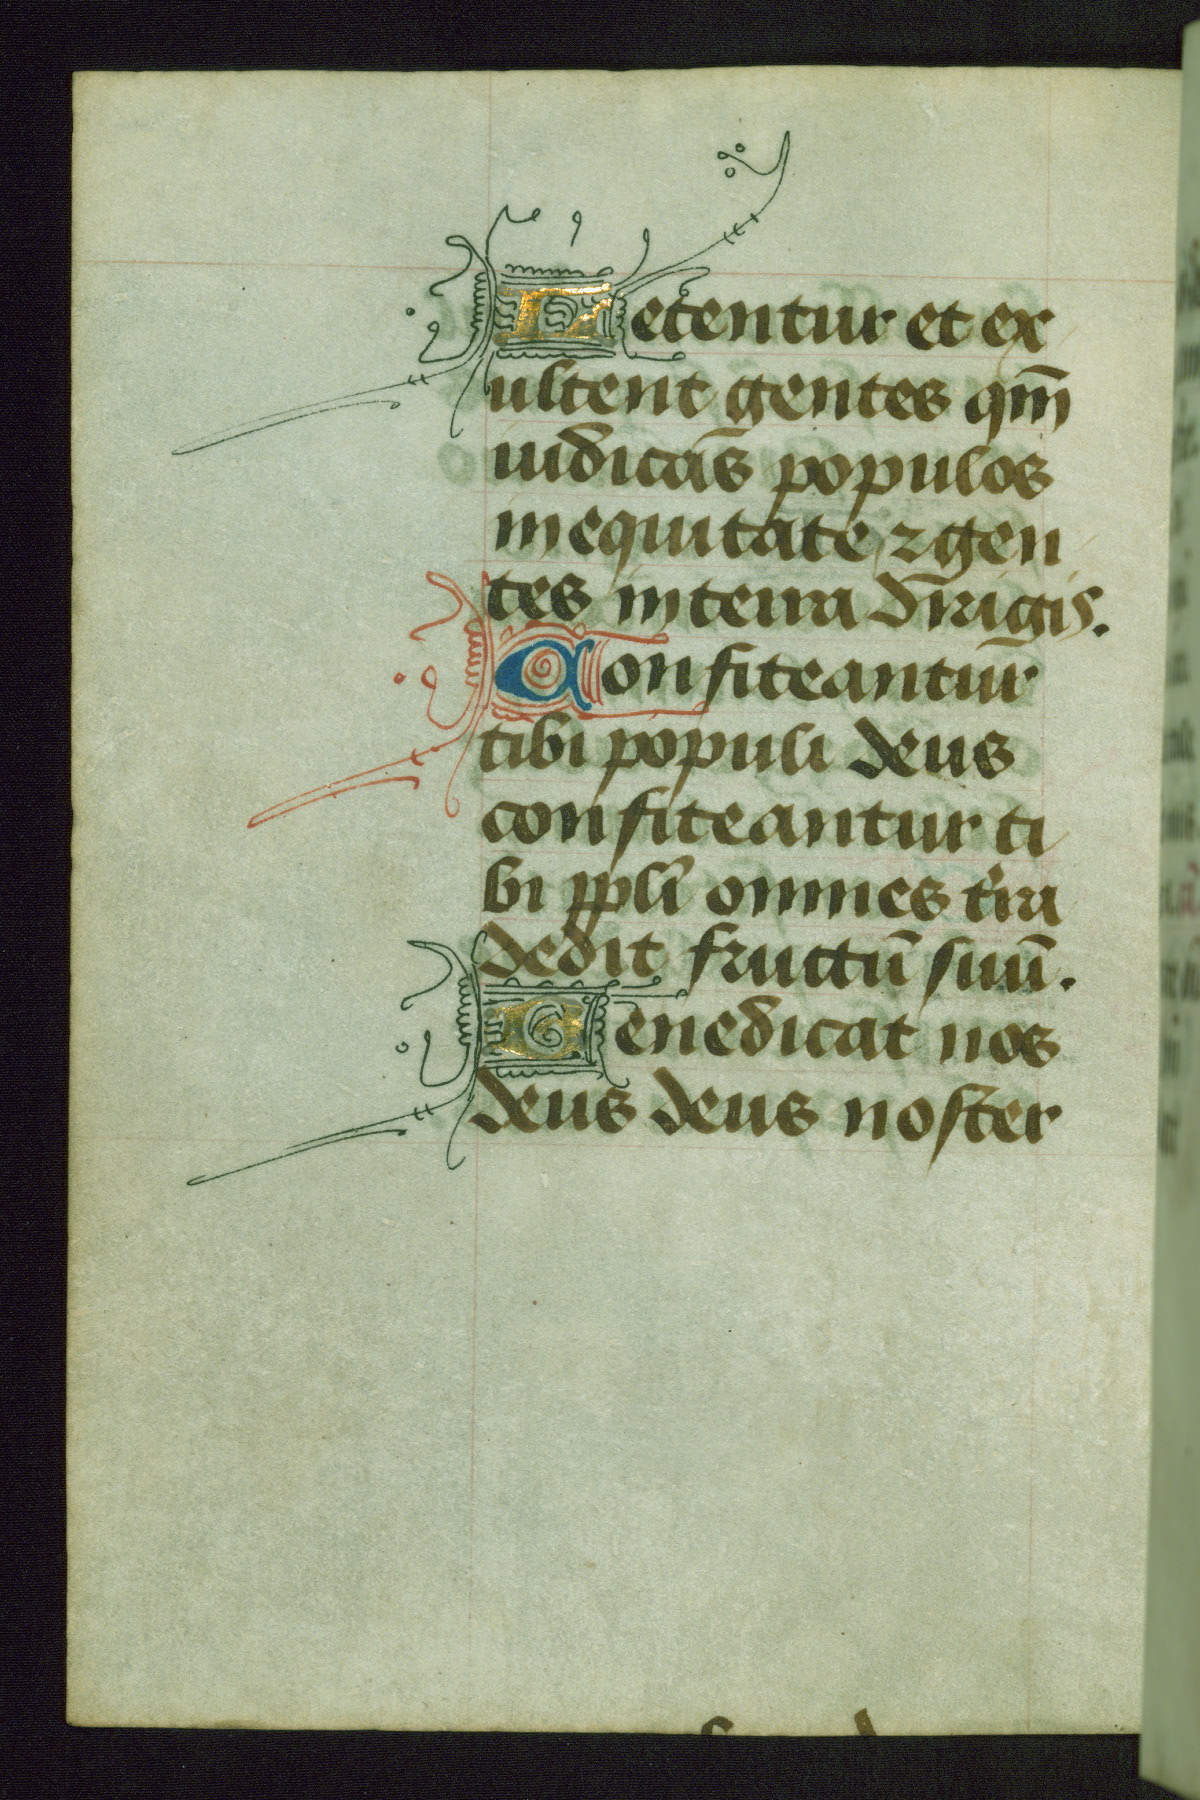 Letentur et ex
ultent gentes qm̄
iudicas̄ populos
in equitate ⁊ gen
tes in terra dīrigis.
Confiteantur̄
tibi populi deus
confiteantur ti
bi ppl̄i omnes t'ra
dedit fructū suū.
Benedicat nos
deus deus noster